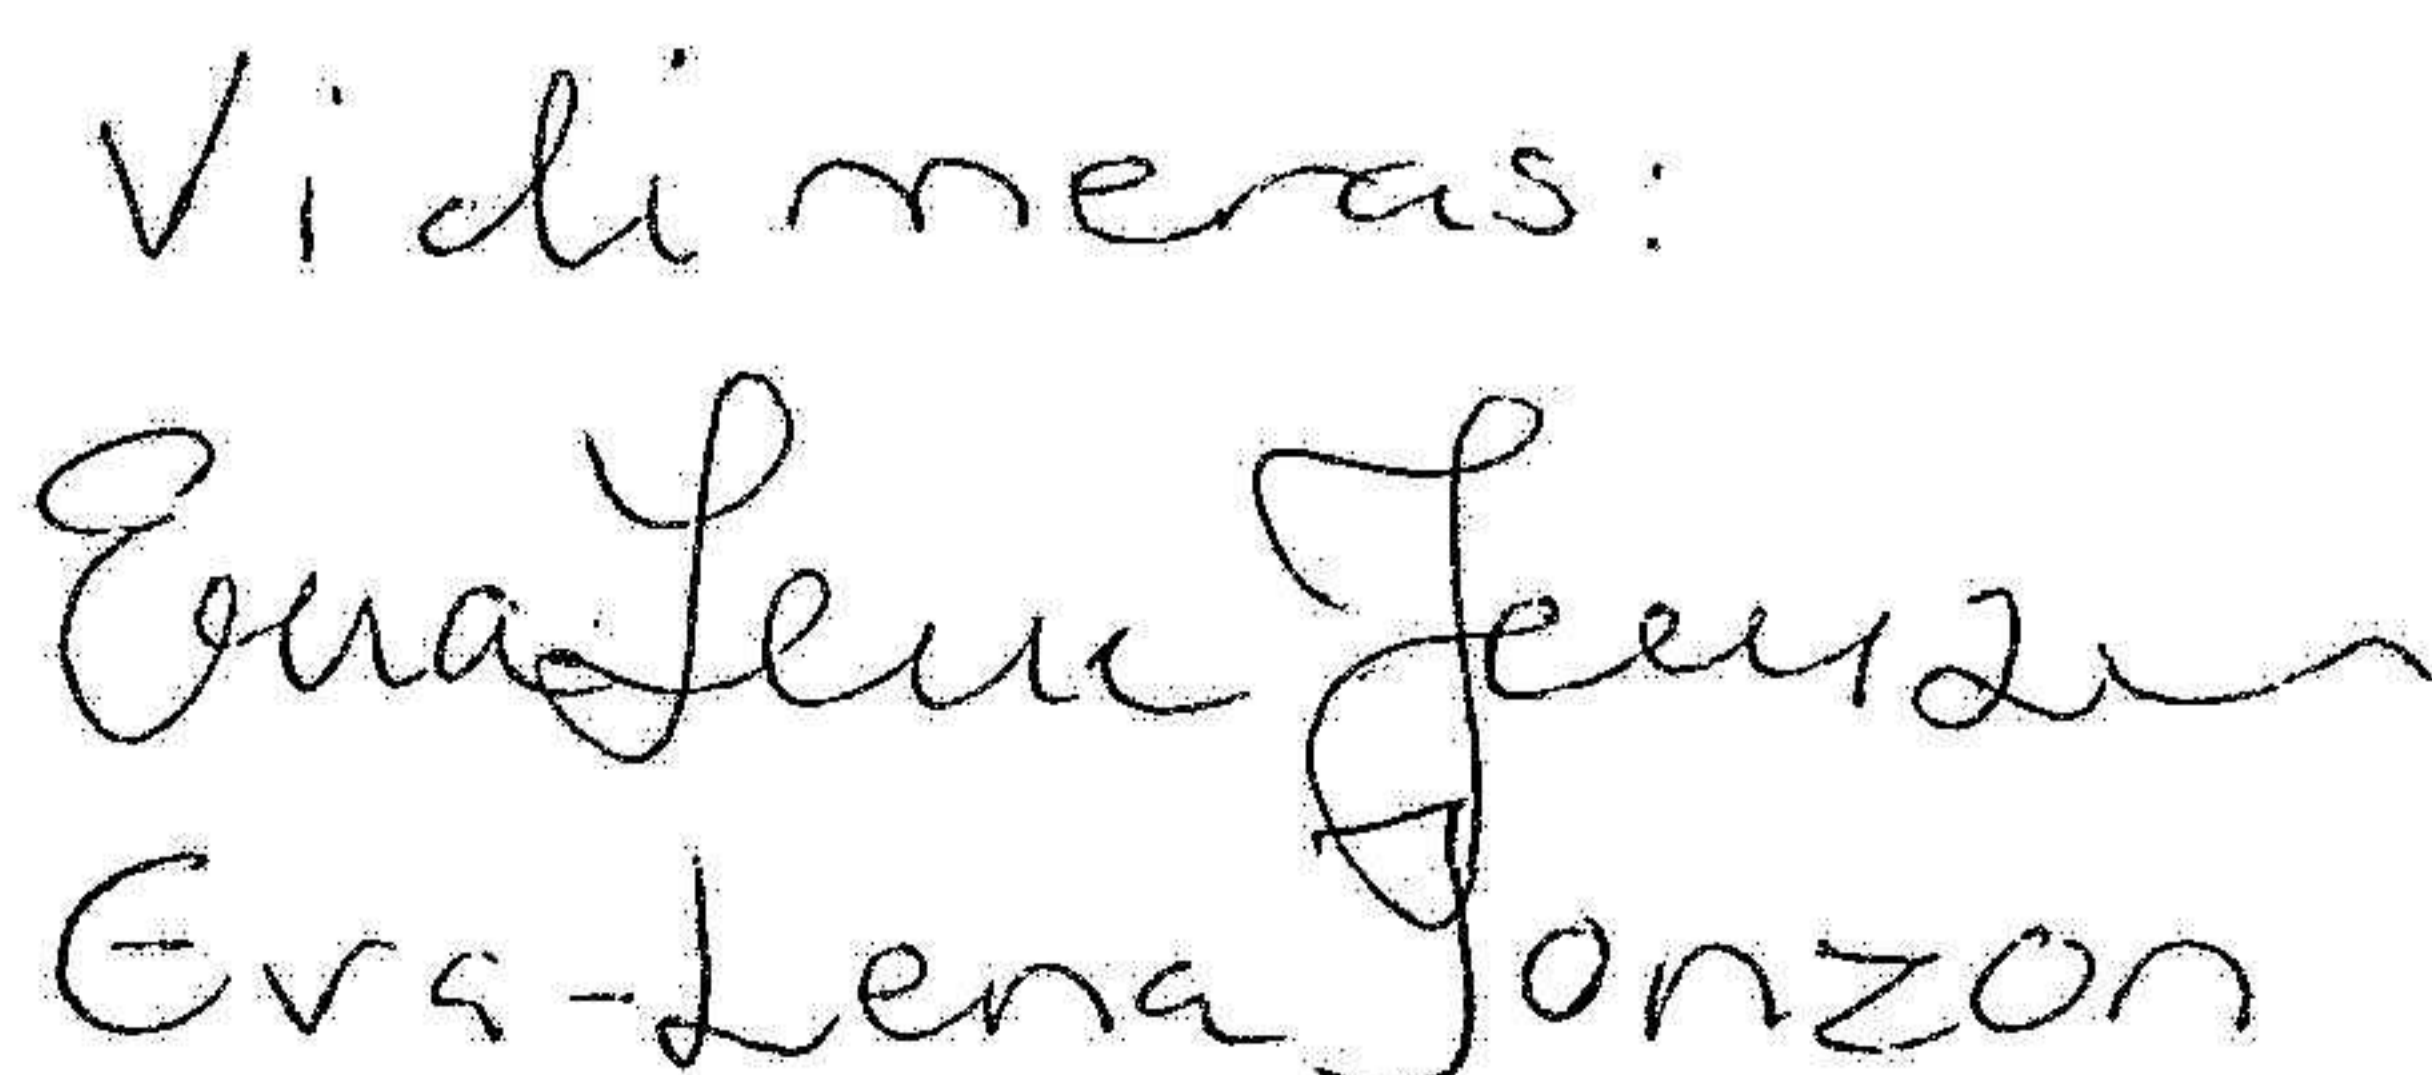 Vidimeras:
Eva Lena Jonzon
Eva-Lena Jonzon